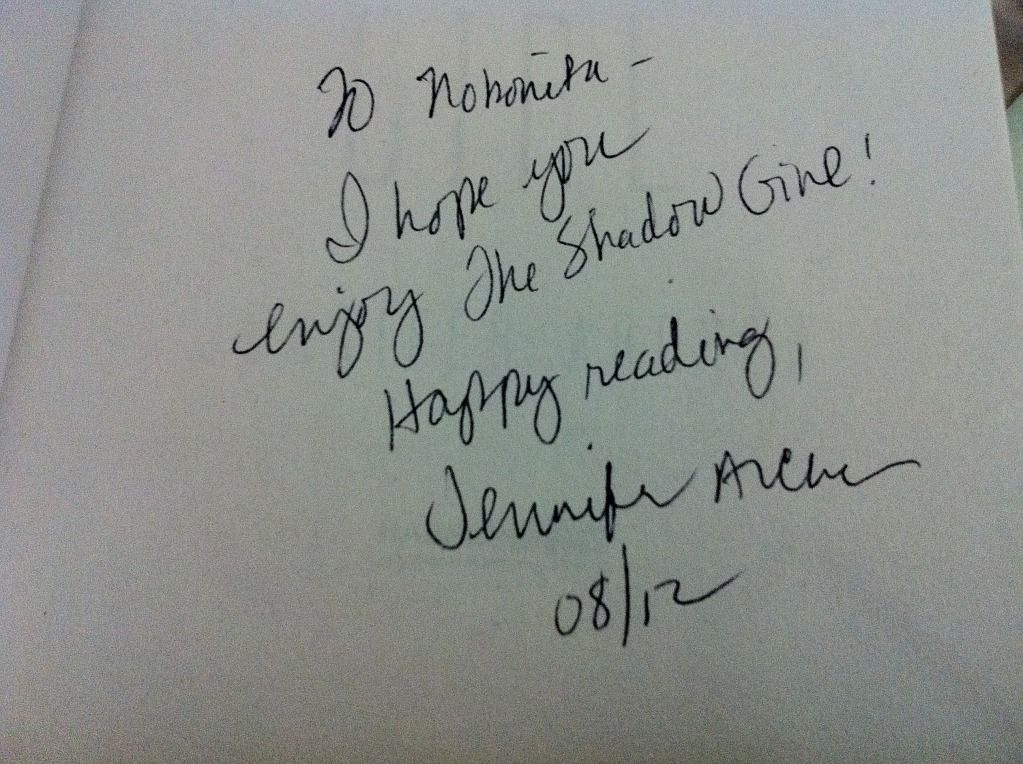 To Nobonita -
I hope you
enjoy The Shadow Girl!
Happy reading,
Jennifer Archer
08/12